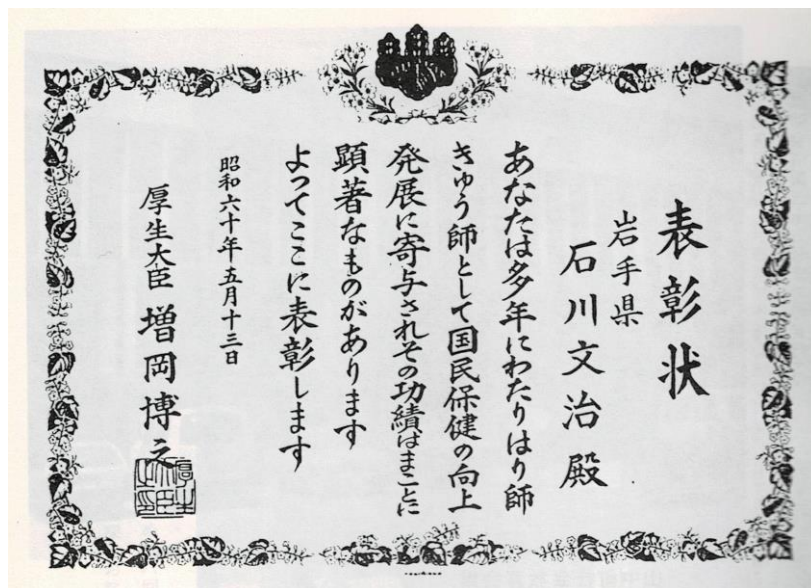 表彰状
岩手県
石川文治殿
あなたは多年にわたりはり師
きゅう師として国民保健の向上
発展に寄与されその功績はまことに
顕著なものがあります
よってここに表彰します
昭和六十年五月十三日
厚生大臣 増岡博之